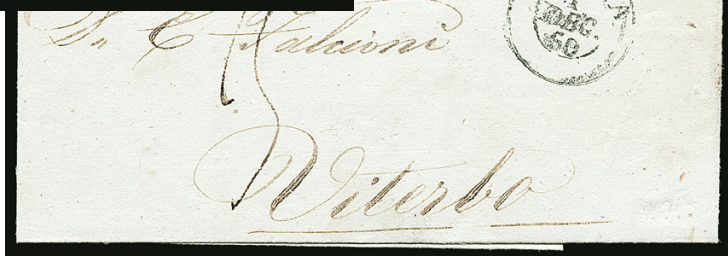 C Falcioni
DEC.
60
Viterbo